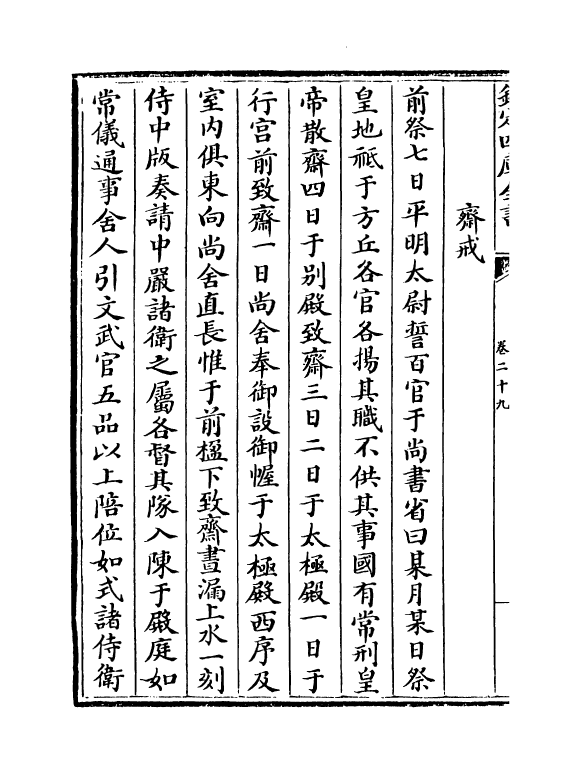 欽定四庫全書
卷二十九
齋戒
前祭七日平明太尉誓百官于尚書省曰某月某日祭
皇地祇于方丘各官各揚其職不供其事國有常刑皇
帝散齋四日于别殿致齋三日二日于太極殿一日于
行宫前致齋一日尚舍奉御設御幄于太極殿西序及
室内俱東向尚舍直長惟于前楹下致齋晝漏上水一刻
侍中版奏請中嚴諸衛之屬各督其隊入陳于殿庭如
常儀通事舍人引文武官五品以上陪位如式諸侍衛